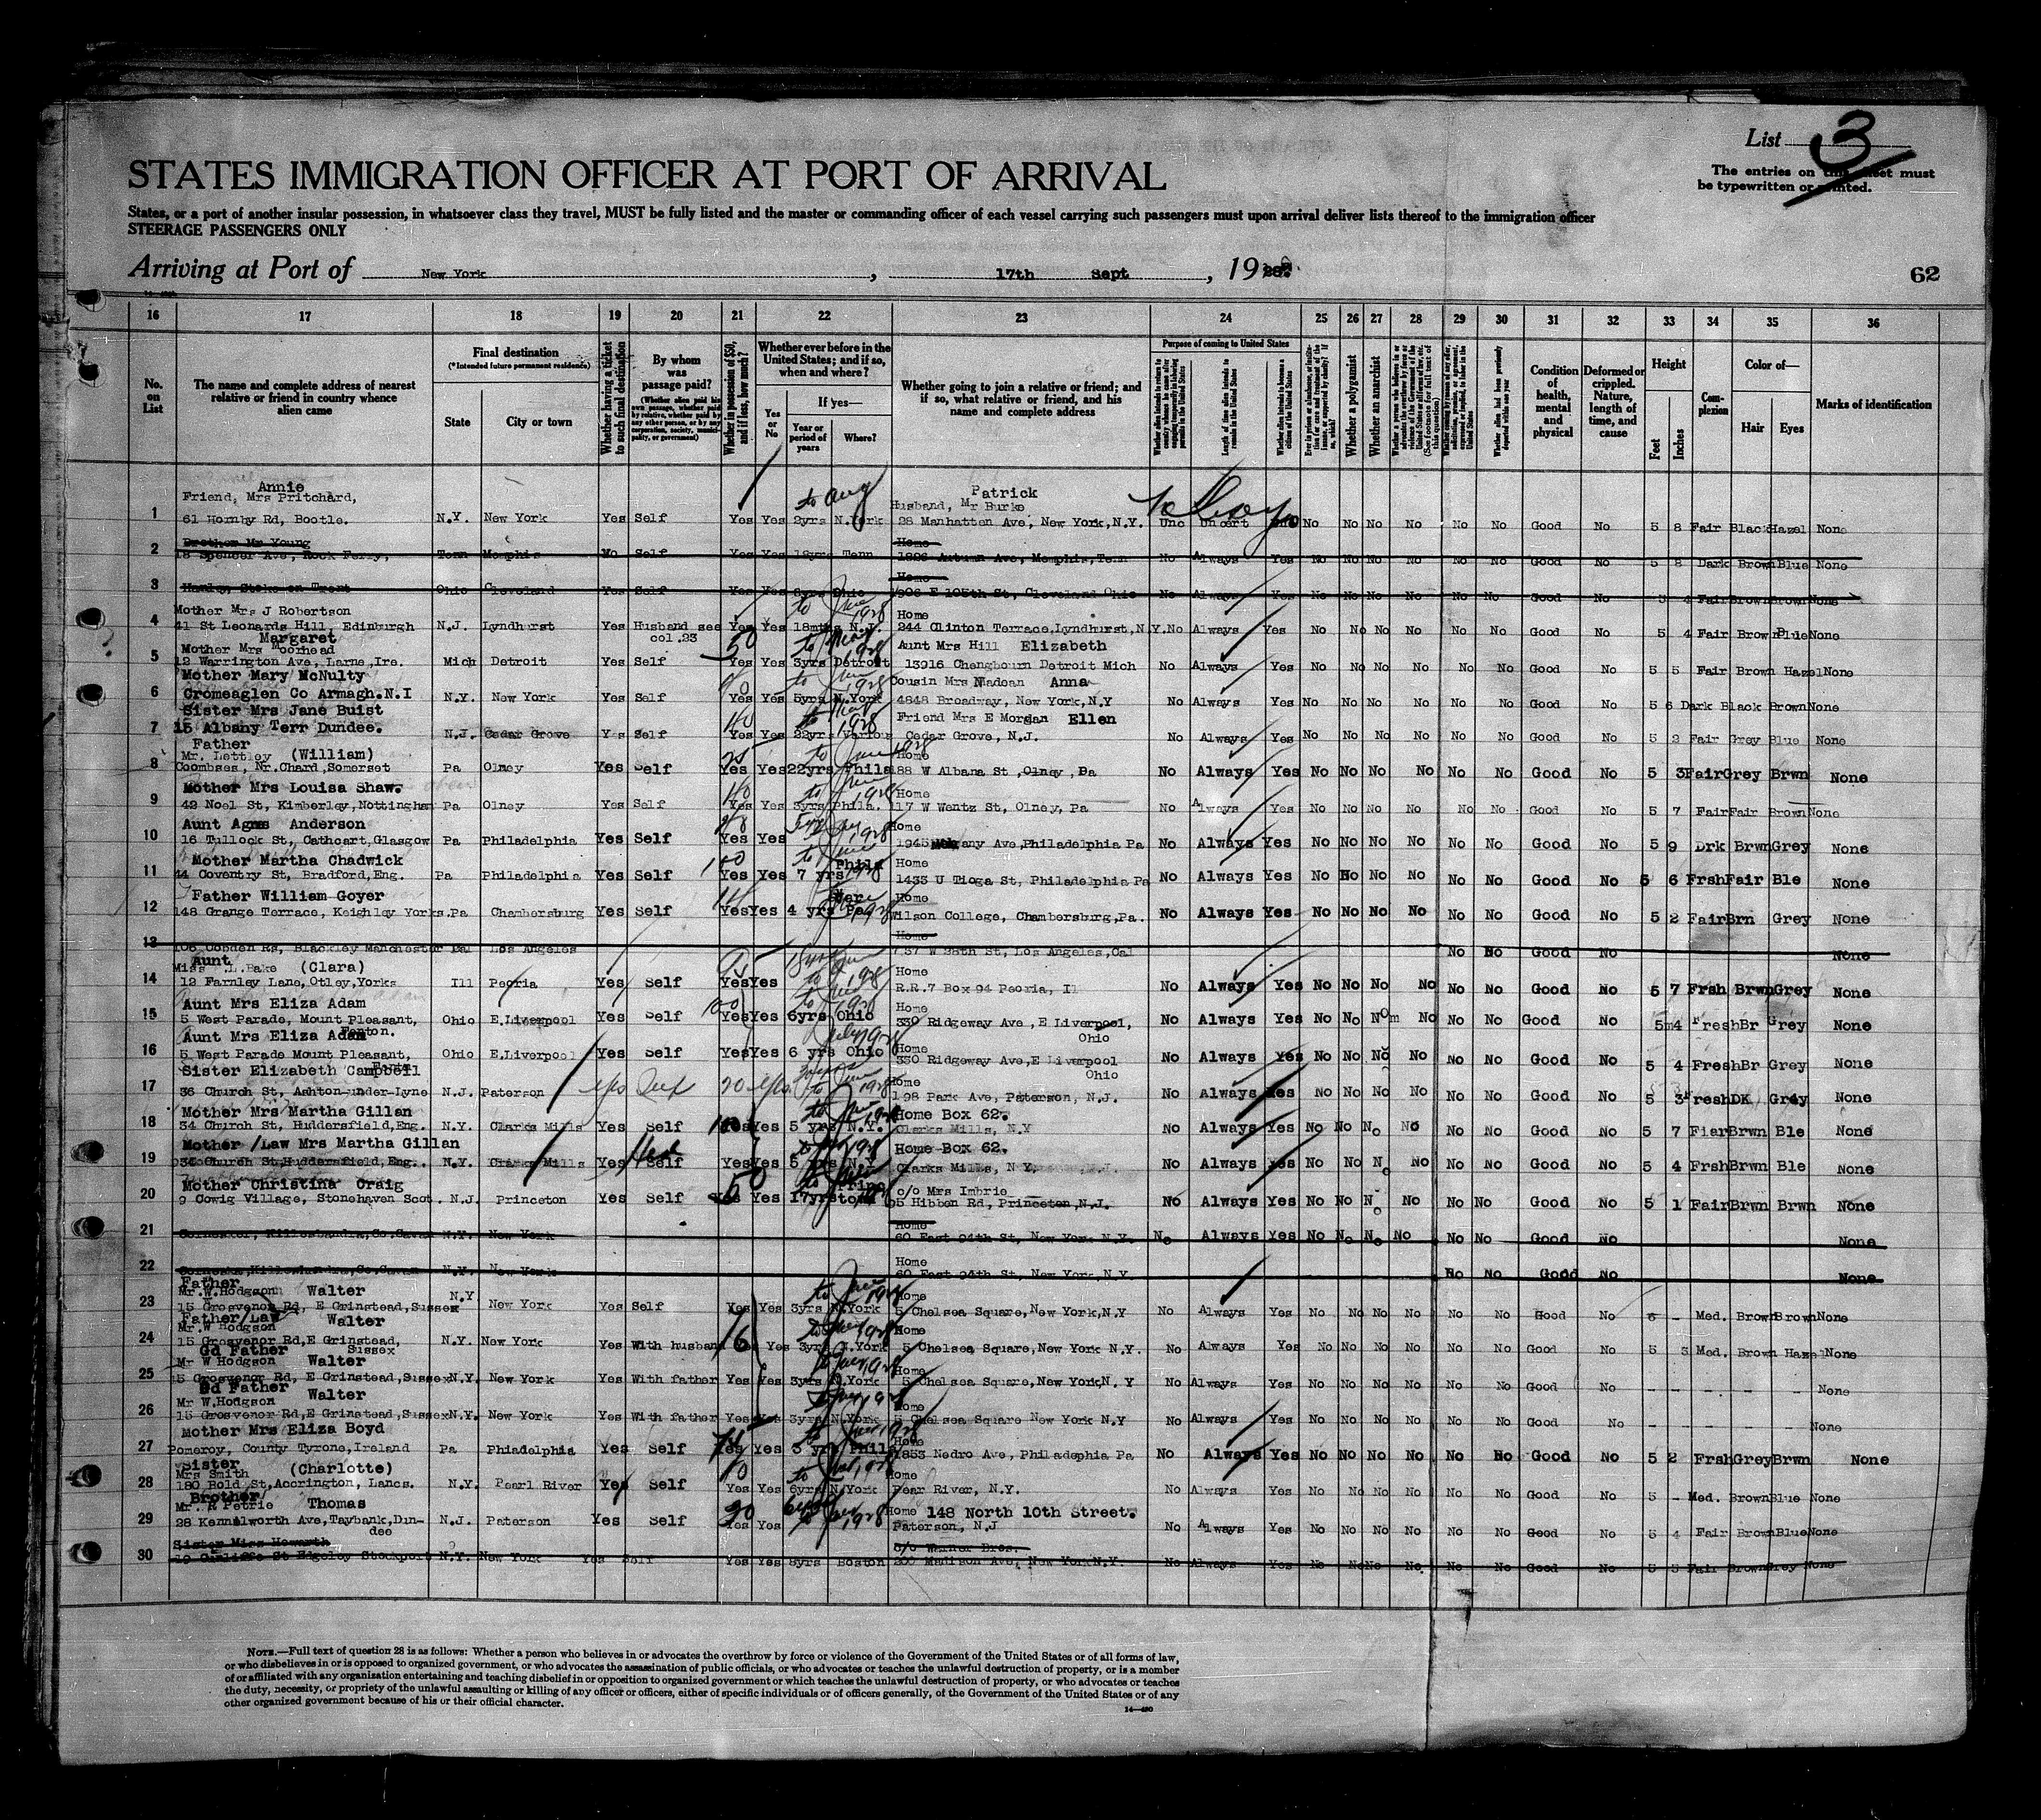 List 3
The entries on this sheet must
be typewritten or printed.
STATES IMMIGRATION OFFICER AT PORT OF ARRIVAL
States, or a port of another insular possession, in whatsoever class they travel, MUST be fully listed and the master or commanding officer of each vessel carrying such passengers must upon arrival deliver lists thereof to the immigration officer
STEERAGE PASSENGERS ONLY
Arriving at Port of New York, 17th Sept, 19
62
16 17 18 19 20 21 22 23 24 25 26 27 28 29 30 31 32 33 34 35 36
No. on List
The name and complete address of nearest relative or friend in country whence alien came
Final destination
(*Intended future permanent residence)
State
City or town
Whether having a ticket to such final destination
By whom was passage paid?
(Whether alien paid his own passage, whether paid by relative, whether paid by any other person, or by any corporation, society, municipality, or government)
Whether in possession of $50, and if less, how much?
Whether ever before in the United States; and if so, when and where?
Yes or No
If yes—
Year or period of years
Where?
Whether going to join a relative or friend; and if so, what relative or friend, and his name and complete address
Purpose of coming to United States
Whether a polygamist
Whether an anarchist
Condition of health, mental and physical
Deformed or crippled. Nature, length of time, and cause
Height
Feet
Inches
Complexion
Color of—
Hair
Eyes
Marks of identification
Annie Patrick
Friend, Mrs Pritchard, to Aug Husband, Mr Burke
1 61 Hornby Rd, Bootle. N.Y. New York Yes Self Yes Yes 2yrs N.York 28 Manhatten Ave, New York, N.Y. Unc Uncert No No No No No No Good No 5 8 Fair Black Hazel None
Brother Mr Young Home
2 18 Spencer Ave, Rock Ferry, Tenn Memphis No Self Yes Yes 18yrs Tenn 1896 Autumn Ave, Memphis, Tenn No Always Yes No No No No No No Good No 5 8 Dark Brown Blue None
Home
3 Hanley, Stoke on Trent Ohio Cleveland Yes Self Yes Yes 8yrs Ohio 1906 E 105th St, Cleveland Ohio No Always Yes No No No No No No Good No 5 4 Fair Brown Brown None
Mother Mrs J Robertson to June 1928 Home
4 41 St Leonards Hill, Edinburgh N.J. Lyndhurst Yes Husband see col.23 Yes Yes 18mths N.J. 244 Clinton Terrace, Lyndhurst, N.Y. No Always Yes No No No No No No Good No 5 4 Fair Brown Blue None
Margaret
Mother Mrs Moorhead 50 to May 1928 Aunt Mrs Hill Elizabeth
5 12 Warrington Ave, Larne, Ire. Mich Detroit Yes Self Yes Yes 3yrs Detroit 13916 Chengbourn Detroit Mich No Always Yes No No No No No No Good No 5 5 Fair Brown Hazel None
Mother Mary McNulty to June 1928 Cousin Mrs Madean Anna
6 Cromeaglen Co Armagh. N.I N.Y. New York Yes Self Yes Yes 5yrs N.York 4848 Broadway, New York, N.Y No Always Yes No No No No No No Good No 5 6 Dark Black Brown None
Sister Mrs Jane Buist 40 to May 1928 Friend Mrs E Morgan Ellen
7 15 Albany Terr Dundee. N.J. Cedar Grove Yes Self Yes Yes 22yrs Various Cedar Grove, N.J. No Always Yes No No No No No No Good No 5 2 Fair Grey Blue None
Father
Mr. Lettley (William) 25 to June 1928 Home
8 Coombses, Nr.Chard, Somerset Pa Olney Yes Self Yes Yes 22yrs Phila 88 W Albana St, Olney, Pa No Always Yes No No No No No No Good No 5 3 Fair Grey Brwn None
Mother Mrs Louisa Shaw. 40 to June 1928 Home
9 42 Noel St, Kimberley, Nottingham Pa Olney Yes Self Yes Yes 3yrs Phila. 117 W Wentz St, Olney, Pa No Always Yes No No No No No No Good No 5 7 Fair Fair Brown None
Aunt Agnes Anderson 1928 Home
10 16 Tullock St, Cathcart, Glasgow Pa Philadelphia Yes Self Yes Yes 1945 Ave, Philadelphia Pa No Always Yes No No No No No No Good No 5 9 Drk Brwn Grey None
Mother Martha Chadwick 100 to June 1928 Phila Home
11 44 Coventry St, Bradford, Eng. Pa Philadelphia Yes Self Yes Yes 7 yrs 1433 U Tioga St, Philadelphia Pa No Always Yes No No No No No No Good No 5 6 Frsh Fair Ble None
Father William Goyer Home
12 148 Grange Terrace, Keighley Yorks. Pa Chambersburg Yes Self Yes Yes 4 yrs Pa 1928 Wilson College, Chambersburg, Pa. No Always Yes No No No No No No Good No 5 2 Fair Brn Grey None
Home
13 106 Cobden Rd, Blackley Manchester Cal Los Angeles 737 W 38th St, Los Angeles, Cal No No Good No None
Aunt
Miss L. Bake (Clara) Home
14 12 Farnley Lane, Otley, Yorks Ill Peoria Yes Self Yes Yes 1928 R.R.7 Box 94 Peoria, Il No Always Yes No No No No No No Good No 5 7 Frsh Brwn Grey None
Aunt Mrs Eliza Adam 100 Home
15 5 West Parade, Mount Pleasant, Fenton. Ohio E.Liverpool Yes Self Yes Yes 6yrs Ohio 330 Ridgeway Ave, E Liverpool, Ohio No Always Yes No No No No No No Good No 5 4 Fresh Br Grey None
Aunt Mrs Eliza Adam July 1928 Home
16 5 West Parade Mount Pleasant, Ohio E.Liverpool Yes Self Yes Yes 6 yrs Ohio 330 Ridgeway Ave, E Liverpool Ohio No Always Yes No No No No No No Good No 5 4 Fresh Br Grey None
Sister Elizabeth Campbell Home
17 36 Church St, Ashton-under-Lyne N.J. Paterson Yes Self 20 Yes to June 1928 198 Park Ave, Paterson, N.J. No Always Yes No No No No No No Good No 5 3 Fresh DK Grey None
Mother Mrs Martha Gillan to 1928 Home Box 62.
18 34 Church St, Huddersfield, Eng. N.Y. Clarks Mills Yes Self Yes Yes 5 yrs N.Y. Clarks Mills, N.Y No Always Yes No No No No No No Good No 5 7 Fiar Brwn Ble None
Mother /Law Mrs Martha Gillan 1928 Home Box 62.
19 34 Church St, Huddersfield, Eng. N.Y. Clarks Mills Yes Self Yes Yes 5 yrs N.Y Clarks Mills, N.Y. No Always Yes No No No No No No Good No 5 4 Frsh Brwn Ble None
Mother Christina Craig 50 c/o Mrs Imbrie
20 9 Cowig Village, Stonehaven Scot. N.J. Princeton Yes Self Yes Yes 17yrs 95 Hibben Rd, Princeton, N.J. No Always Yes No No No No No No Good No 5 1 Fair Brwn Brwn None
Home
21 N.Y. New York 60 East 94th St, New York N.Y. No Always Yes No No No No No No Good No None
Home
22 N.Y. New York 60 East 94th St, New York, N.Y No No Good No None
Father
Mr.W.Hodgson Walter to June 1928 Home
23 15 Grosvenor Rd, E Grinstead, Sussex N.Y New York Yes Self Yes Yes 3yrs N.York 5 Chelsea Square, New York, N.Y No Always Yes No No No No No No Good No 6 - Med. Brown Brown None
Father/Law Walter
Mr.W Hodgson 76 1928 Home
24 15 Grosvenor Rd, E Grinstead, Sussex N.Y. New York Yes With husband Yes 3yrs N.York 5 Chelsea Square, New York N.Y. No Always Yes No No No No No No Good No 5 3 Med. Brown Hazel None
Gd Father
Mr W Hodgson Walter 1928 Home
25 15 Grosvenor Rd, E Grinstead, Sussex N.Y. New York Yes With father Yes Yes 3yrs N.York 5 Chelsea Square, New York, N. Y No Always Yes No No No No No No Good No - - - - - None
Gd Father Walter
Mr W.Hodgson 1928 Home
26 15 Grosvenor Rd, E Grinstead, Sussex N.Y. New York Yes With father Yes Yes 3yrs N.York 5 Chelsea Square New York N.Y No Always Yes No No No No No No Good No - - - - - None
Mother Mrs Eliza Boyd 1928 Home
27 Pomeroy, County Tyrone, Ireland Pa Phiadelphia Yes Self Yes Yes 3 yrs Phila 1853 Nedro Ave, Philadephia Pa No Always Yes No No No No No No Good No 5 2 Frsh Grey Brwn None
Sister
Mrs Smith (Charlotte) 1928 Home
28 180 Bold St, Accrington, Lancs. N.Y. Pearl River Yes Self Yes Yes 6yrs N.York Pear River, N.Y. No Always Yes No No No No No No Good No 5 - Med. Brown Blue None
Brother
Mr. R Petrie Thomas 20 1928 Home 148 North 10th Street.
29 28 Kennilworth Ave, Taybank, Dundee N.J. Paterson Yes Self Yes Yes Paterson, N.J No Always Yes No No No No No No Good No 5 4 Fair Brown Blue None
Sister Miss Howarth c/o Warner Bros.
30 19 Cunliffe St Edgeley Stockport N.Y. New York Yes Self Yes Yes 8yrs Boston 200 Madison Ave, New York N.Y. No Always Yes No No No No No No Good No 5 5 Fair Brown Grey None
NOTE.—Full text of question 28 is as follows: Whether a person who believes in or advocates the overthrow by force or violence of the Government of the United States or of all forms of law,
or who disbelieves in or is opposed to organized government, or who advocates the assassination of public officials, or who advocates or teaches the unlawful destruction of property, or is a member
of or affiliated with any organization entertaining and teaching disbelief in or opposition to organized government or which teaches the unlawful destruction of property, or who advocates or teaches
the duty, necessity, or propriety of the unlawful assaulting or killing of any officer or officers, either of specific individuals or of officers generally, of the Government of the United States or of any
other organized government because of his or their official character.
14—480